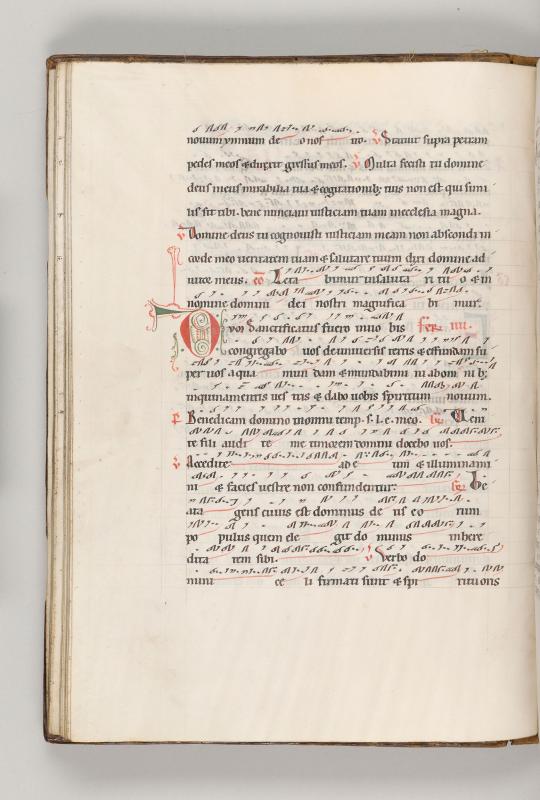 novum ymnum deo nostro. V Statuit supra petram
pedes meos & direxit gressus meos. V Multa fecisti tu domine
deus meus mirabilia tua & cogitationib; tuis non est qui simi
lis sit tibi. bene nunciavi iusticiam tuam in ecclesia magna.
V Domine deus tu cognovisti iusticiam meam non abscondi in
corde meo veritatem tuam & salutare tuum dixi domine ad
iutor meus. CO Leta bimur in saluta ri tu o & in
nomine domini dei nostri magnifica bi mur.
vm Sanctificatus fuero in vo bis fer. IIII.
congregabo vos de universis terris & effundam su
per vos aqua mun dam & mundabimi ni ab omni ni b;
inquinamentis ves tris & dabo vobis spiritum novum.
P Benedicam domino in omni temp. s. l. e. meo. Veni
te filii audi te me timorem domini docebo vos.
V Accedite ad e um & illuminami
ni & facies vestre non confundentur. Be
ata gens cuius est dominus de us eo rum
po pulus quem ele git do minus in here
dita tem sibi. V Verbo do
mini ce li firmati sunt & spi ritu oris